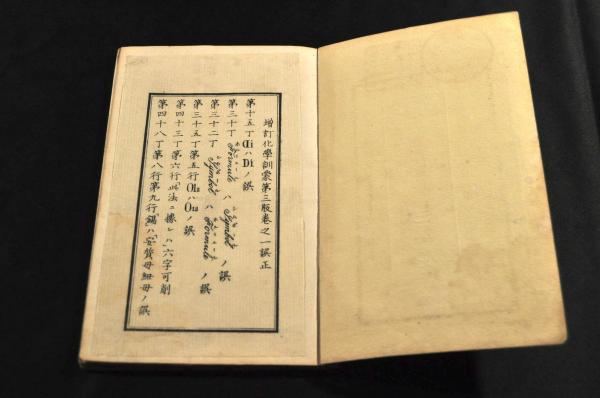 増訂化學訓蒙第三版卷之一誤正
第十五丁 Œi ハ Di ノ誤
第三十丁 Formule ハ Symbol ノ誤
第三十二丁 Symbol ハ Formule ノ誤
第三十五丁第五行 Olu ハ Ouu ノ誤
第四十三丁第六行「此法ニ據レハ」六字可削
第四十八丁第八行第九行「錫」ハ「安質母紐母」ノ誤